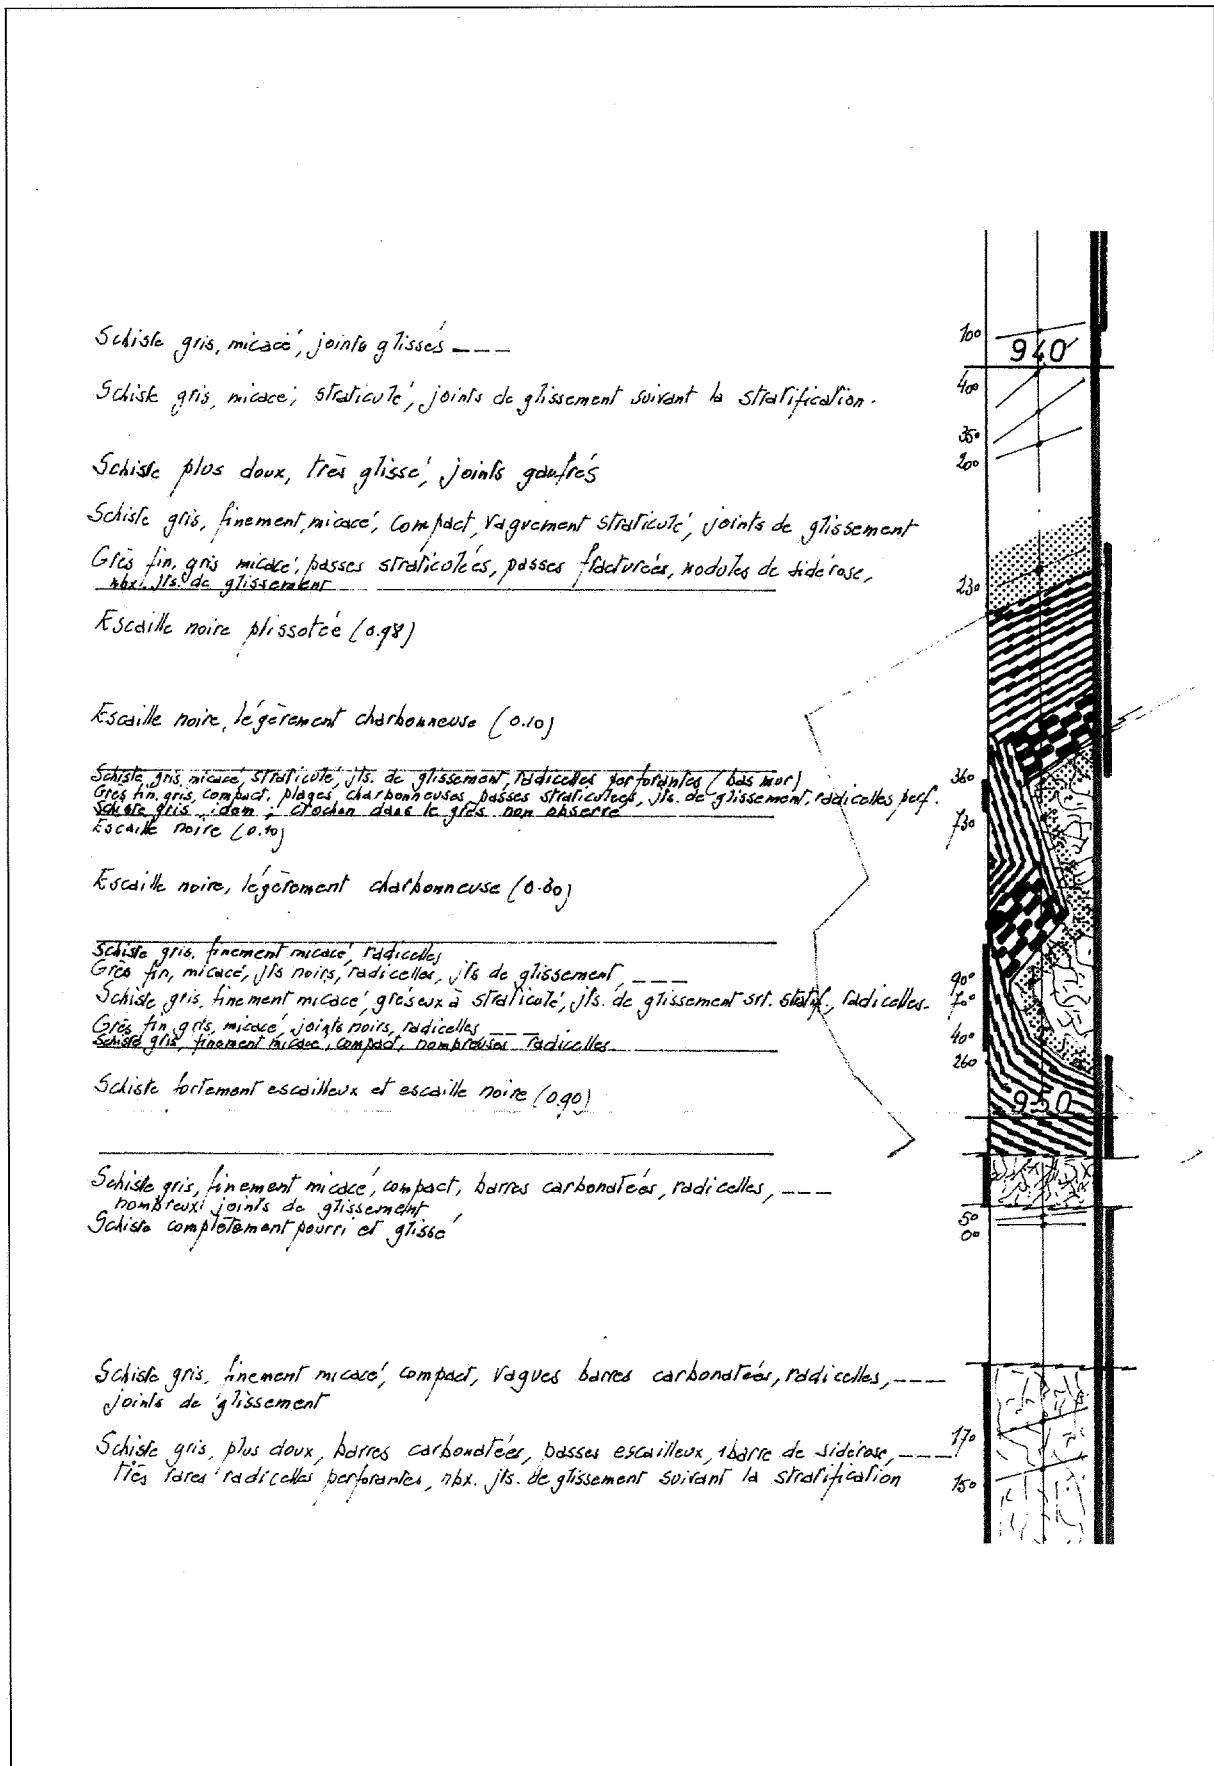 Schiste gris, micacé, joints glissés ---
10°
940
Schiste gris, micacé, straticulé, joints de glissement suivant la stratification.
40°
35°
20°
Schiste plus doux, très glissé, joints gaufrés
Schiste gris, finement micacé, compact, vaguement straticulé, joints de glissement
Grès fin, gris micacé, passes straticulées, passes fracturées, nodules de sidérose,
nbx. jts. de glissement
23°
Escaille noire plissotée (0.98)
Escaille noire, légèrement charbonneuse (0.10)
Schiste gris micacé, straticulé, jts. de glissement, radicelles perforantes (bas mur)
36°
Grès fin, gris, compact, plages charbonneuses, passes straticulées, jts. de glissement, radicelles perf.
Schiste gris idem ; crochon dans le grès non observé
73°
Escaille noire
Escaille noire, légèrement charbonneuse
Schiste gris, finement micacé, radicelles
Grès fin, micacé, jts noirs, radicelles, jts de glissement, ---
90°
Schiste gris, finement micacé, gréseux à straticulé, jts. de glissement srt. stratif., radicelles.
70°
Grès fin, gris, micacé, joints noirs, radicelles ---
40°
Schiste gris, finement micacé, compact, nombreuses radicelles
26°
Schiste fortement escailleux et escaille noire (0.90)
950
Schiste gris, finement micacé, compact, barres carbonatées, radicelles, ---
nombreux joints de glissement
5°
Schiste complètement pourri et glissé
0°
Schiste gris, finement micacé, compact, vagues barres carbonatées, radicelles, ---
joints de glissement
Schiste gris, plus doux, barres carbonatées, passes escailleux, 1 barre de sidérose, ---
17°
très rares radicelles perforantes, nbx. jts. de glissement suivant la stratification
15°